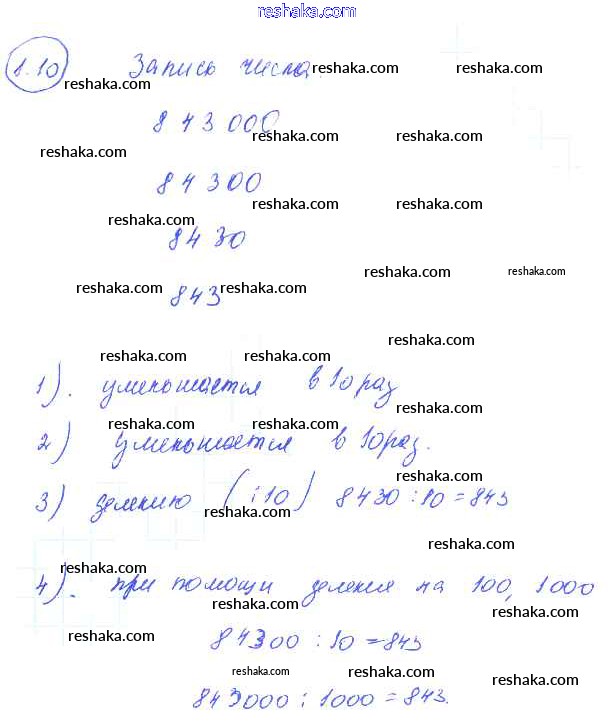 reshaka.com
1.10 Запись числа
reshaka.com reshaka.com reshaka.com
843 000
reshaka.com reshaka.com reshaka.com
84 300
reshaka.com reshaka.com
reshaka.com
84 30
reshaka.com reshaka.com
reshaka.com reshaka.com
843
reshaka.com
reshaka.com reshaka.com
1). уменьшается в 10 раз
reshaka.com
reshaka.com reshaka.com
2) уменьшается в 10 раз.
reshaka.com
3) делению (:10) 8430 : 10 = 843
reshaka.com
reshaka.com
reshaka.com
4). при помощи деления на 100, 1000
reshaka.com reshaka.com
reshaka.com
84300 : 10 = 843
reshaka.com reshaka.com reshaka.com
843000 : 1000 = 843.